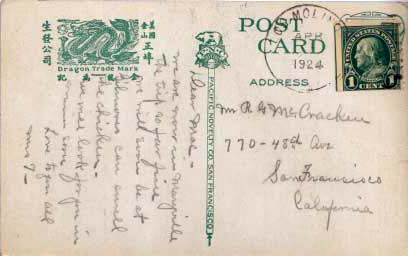 生發公司
美國
金山
正埠
Dragon Trade Mark
金龍為記
POST CARD
ADDRESS
OS MOLIN
APR
1924
UNITED STATES POSTAGE
1 CENT 1
PACIFIC NOVELTY CO. SAN FRANCISCO
Dear Mac-
We are now in Marysville
The trip so far fine
We will soon be at
can smell
the chicken.
we will look for you in
Love to you all
Mrs ?-
Mr R G McCracken
770-48th Ave
San Francisco
California